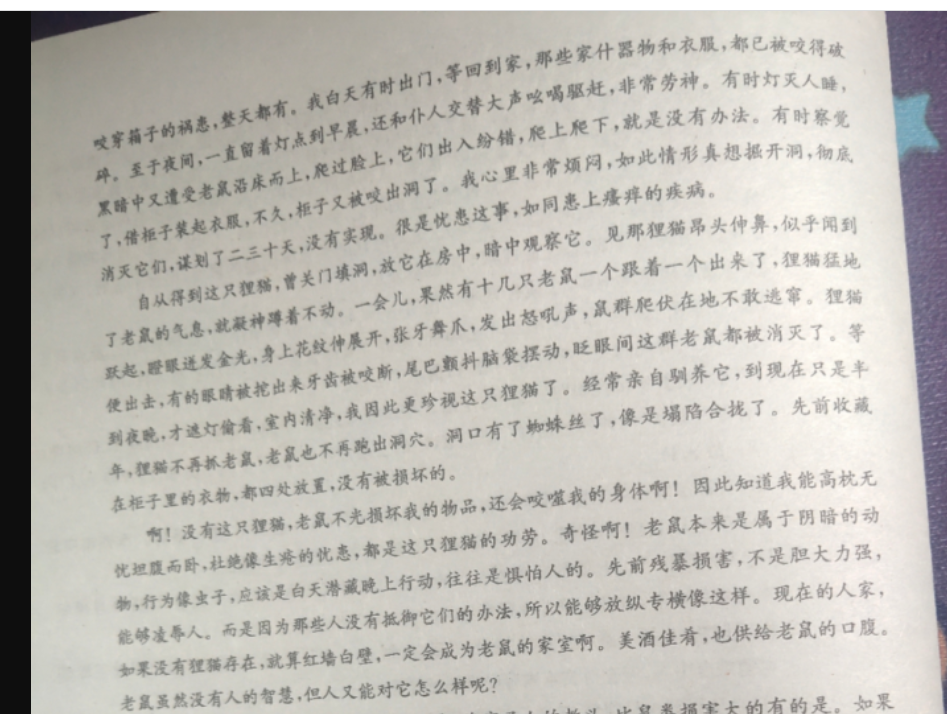 咬穿箱子的祸患,整天都有。我白天有时出门,等回到家,那些家什器物和衣服,都已被咬得破
碎。至于夜间,一直留着灯点到早晨,还和仆人交替大声吆喝驱赶,非常劳神。有时灯灭人睡,
黑暗中又遭受老鼠沿床而上,爬过脸上,它们出入纷错,爬上爬下,就是没有办法。有时察觉
了,借柜子装起衣服,不久,柜子又被咬出洞了。我心里非常烦闷,如此情形真想掘开洞,彻底
消灭它们,谋划了二三十天,没有实现。很是忧患这事,如同患上瘙痒的疾病。
自从得到这只狸猫,曾关门填洞,放它在房中,暗中观察它。见那狸猫昂头伸鼻,似乎闻到
了老鼠的气息,就凝神蹲着不动。一会儿,果然有十几只老鼠一个跟着一个出来了,狸猫猛地
跃起,瞪眼迸发金光,身上花纹伸展开,张牙舞爪,发出怒吼声,鼠群爬伏在地不敢逃窜。狸猫
便出击,有的眼睛被挖出来牙齿被咬断,尾巴颤抖脑袋摆动,眨眼间这群老鼠都被消灭了。等
到夜晚,才遮灯偷看,室内清净,我因此更珍视这只狸猫了。经常亲自驯养它,到现在只是半
年,狸猫不再抓老鼠,老鼠也不再跑出洞穴。洞口有了蜘蛛丝了,像是塌陷合拢了。先前收藏
在柜子里的衣物,都四处放置,没有被损坏的。
啊!没有这只狸猫,老鼠不光损坏我的物品,还会咬噬我的身体啊!因此知道我能高枕无
忧坦腹而卧,杜绝像生疮的忧患,都是这只狸猫的功劳。奇怪啊!老鼠本来是属于阴暗的动
物,行为像虫子,应该是白天潜藏晚上行动,往往是惧怕人的。先前残暴损害,不是胆大力强,
能够凌辱人。而是因为那些人没有抵御它们的办法,所以能够放纵专横像这样。现在的人家,
如果没有狸猫存在,就算红墙白壁,一定会成为老鼠的家室啊。美酒佳肴,也供给老鼠的口腹。
老鼠虽然没有人的智慧,但人又能对它怎么样呢?
比鼠类损害大的有的是。如果